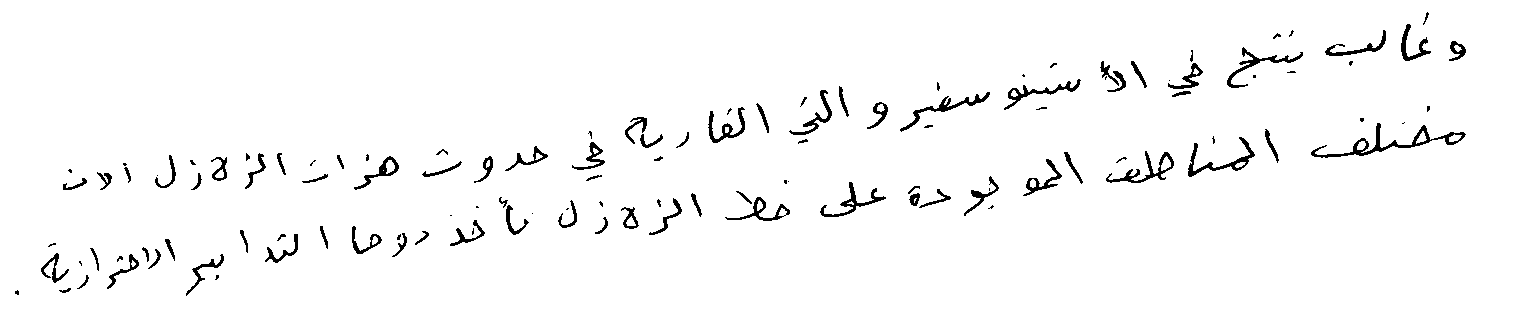 وغالب ينتج في الأستينو سفير و التي القارية في حدوث هزات الزلازل الان
مختلف المناطق الموجودة على خط الزلازل تأخذ دوما التدابير الاحترازية .